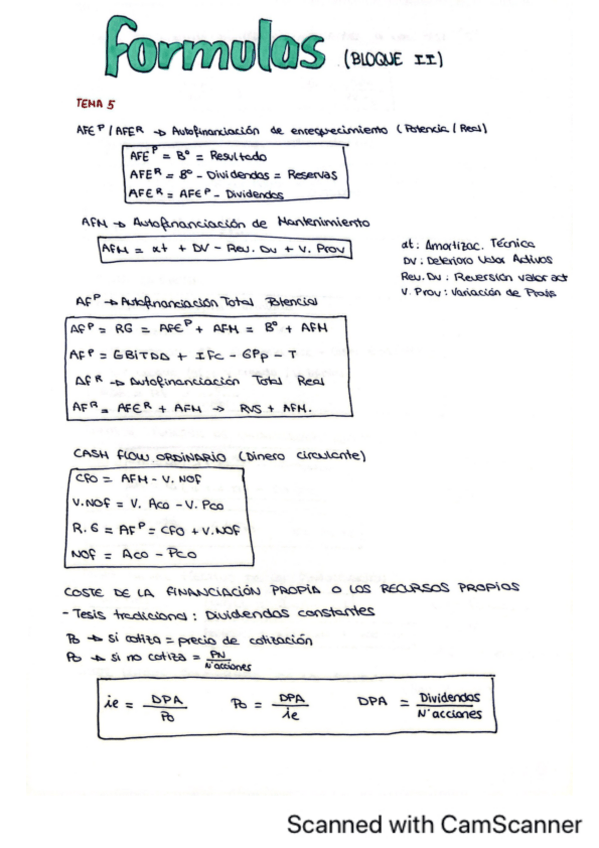 Formulas (BLOQUE II)
TEMA 5
AFE^P / AFE^R → Autofinanciación de enrequecimiento (Potencia / Real)
AFE^P = Bº = Resultado
AFE^R = Bº - Dividendos = Reservas
AFE^R = AFE^P - Dividendos
AFM → Autofinanciación de Mantenimiento
AFM = at + DV - Rev. Dv + V. Prov
at: Amortizac. Técnica
DV: Deterioro Valor Activos
Rev. Dv: Reversión valor act
V. Prov: Variación de Provis
AF^P → Autofinanciación Total Potencial
AF^P = RG = AFE^P + AFM = Bº + AFM
AF^P = GBITDA + IFc - GPp - T
AF^R → Autofinanciación Total Real
AF^R = AFE^R + AFM → RVS + AFM.
CASH FLOW ORDINARIO (Dinero circulante)
CFO = AFM - V. NOF
V.NOF = V. Aco - V. Pco
R.G = AF^P = CFO + V.NOF
NOF = Aco - Pco
COSTE DE LA FINANCIACIÓN PROPIA O LOS RECURSOS PROPIOS
- Tesis tradicional: Dividendos constantes
Po → Si cotiza = precio de cotización
Po → Si no cotiza = PN / Nº acciones
ie = DPA / Po Po = DPA / ie DPA = Dividendos / Nº acciones
Scanned with CamScanner